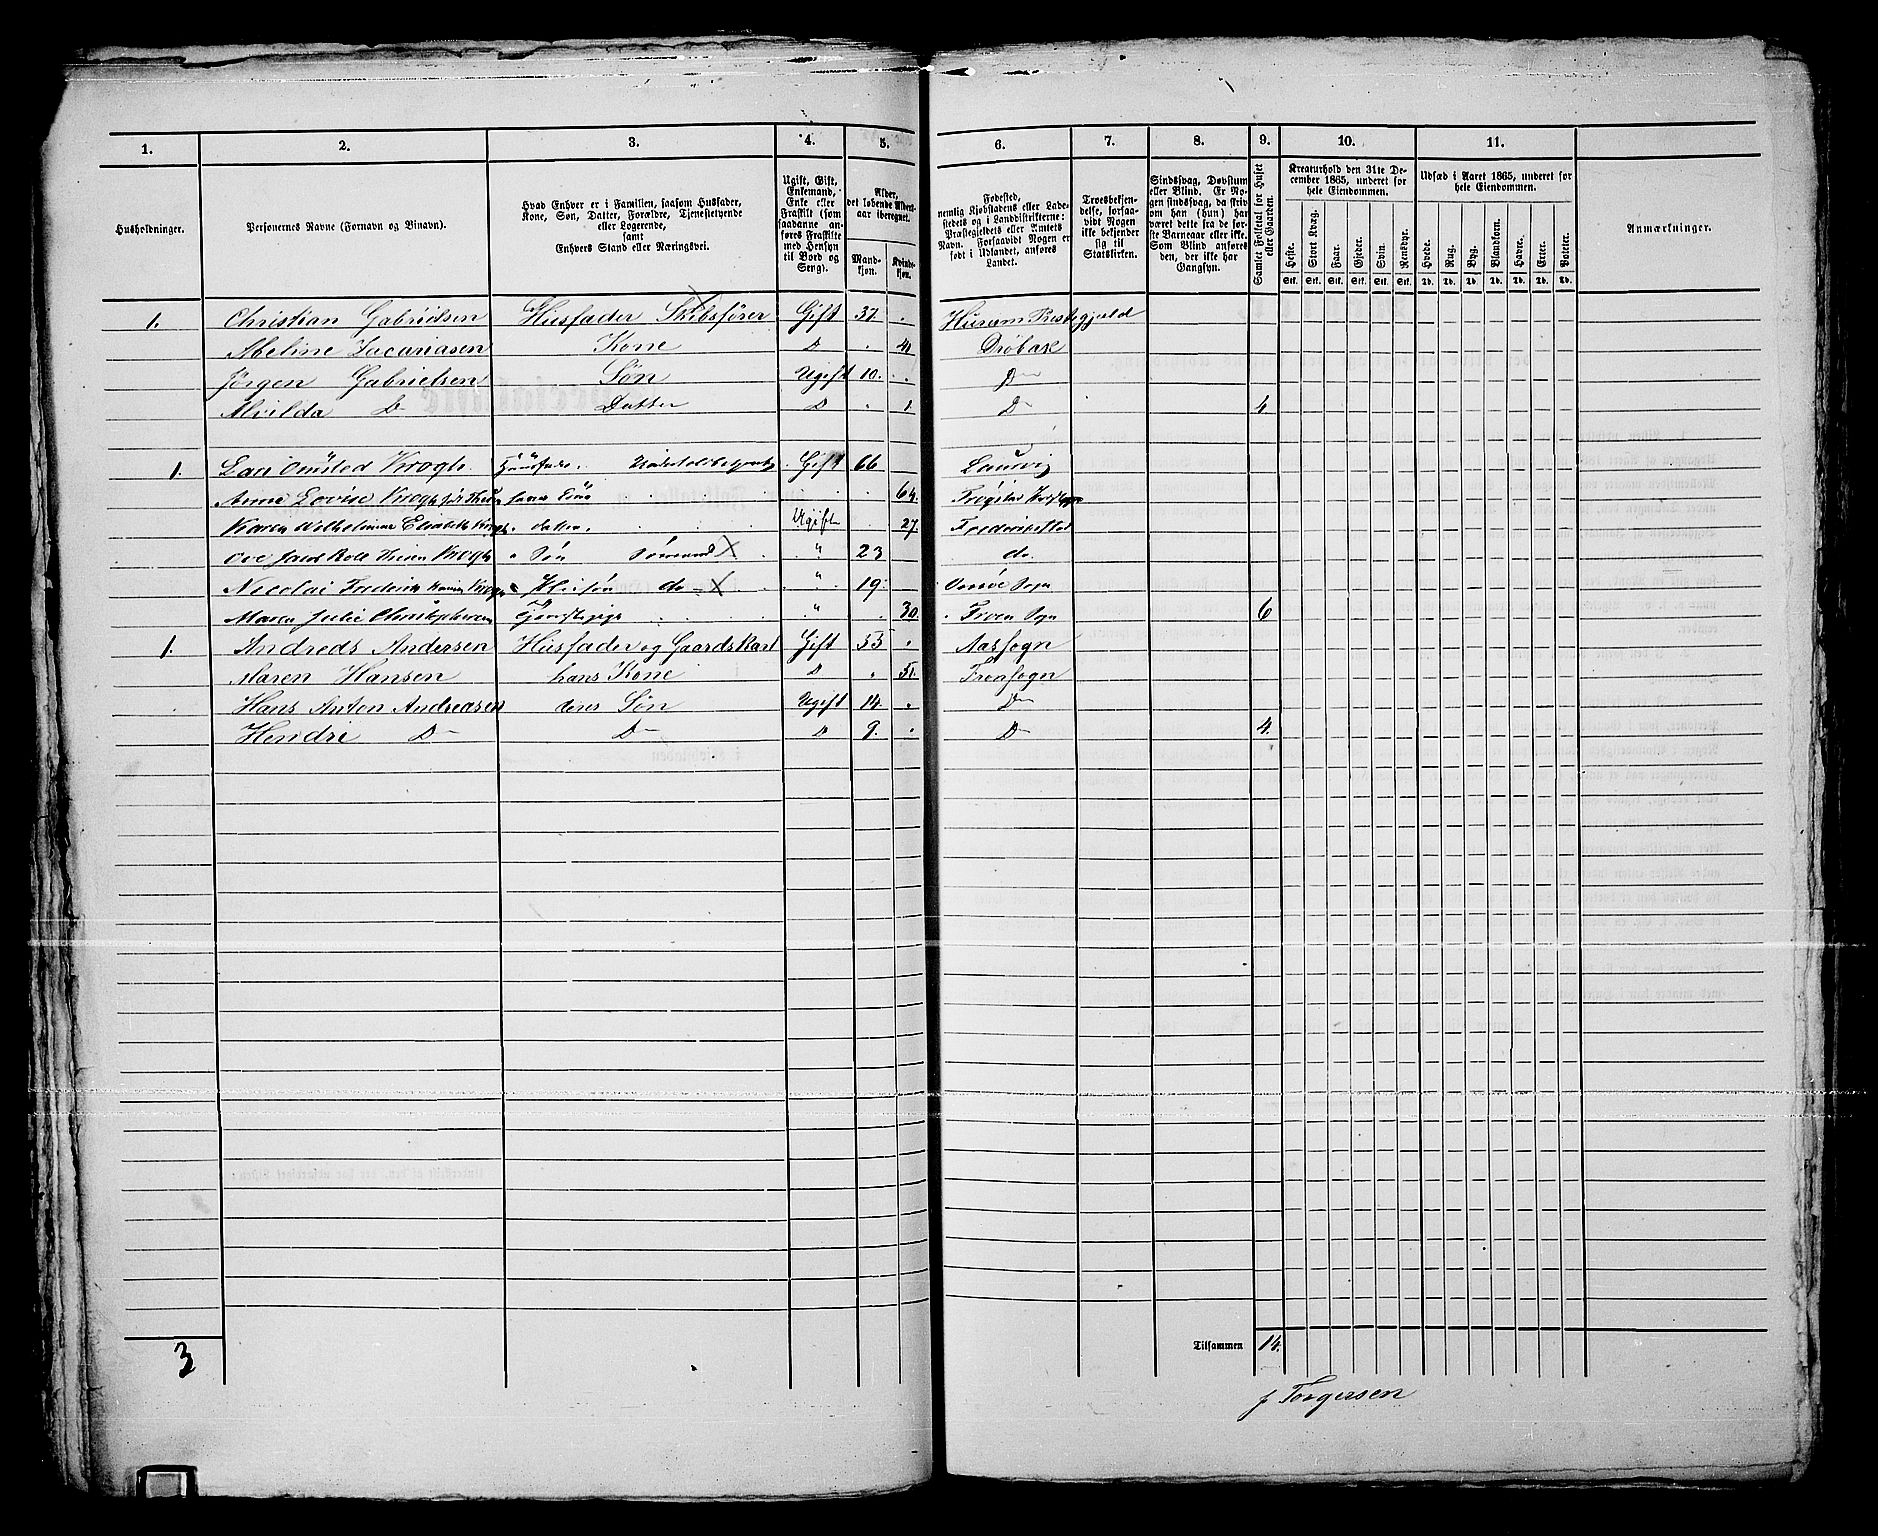 1. 2. 3. 4. 5. 6. 7. 8. 9. 10. 11.
Husholdninger.
Personernes Navne (Fornavn og Binavn).
Hvad Enhver er i Familien, saasom Husfader,
Kone, Søn, Datter, Forældre, Tjenestetyende
eller Logerende,
samt
Enhvers Stand eller Næringsvei.
Ugift, Gift,
Enkemand,
Enke eller
Fraskilt (som
saadanne an-
føres Fraskilte
med Hensyn
til Bord og
Seng).
Alder,
det løbende Alders-
aar iberegnet.
Mand-
kjøn.
Kvinde-
kjøn.
Fødested,
nemlig Kjøbstadens eller Lade-
stedets og i Landdistrikterne:
Præstegjeldets eller Amtets
Navn. Forsaavidt Nogen er
født i Udlandet, anføres
Landet.
Troesbekjen-
delse, forsaa-
vidt Nogen
ikke bekjender
sig til
Statskirken.
Sindssvag, Døvstum
eller Blind. Er No-
gen sindssvag, da skriv
om han (hun) har
været dette fra de før-
ste Barneaar eller ikke.
Som Blind anføres
den, der ikke har
Gangsyn.
Samlet Folketal for Huset
eller Gaarden.
Kreaturhold den 31te De-
cember 1865, underet for
hele Eiendommen.
Heste. Stort Kvæg. Faar. Gjeder. Svin. Rensdyr.
Stk. Stk. Stk. Stk. Stk. Stk.
Udsæd i Aaret 1865, underet for
hele Eiendommen.
Hvede. Rug. Byg. Blandkorn. Havre. Erter. Poteter.
Td. Td. Td. Td. Td. Td. Td.
Anmærkninger.
1. Christian Gabrielsen Husfader Skibsfører Gift 37 Hurum Prestegjeld
Abeline Kone D 41 Drøbak
Jørgen Gabrielsen Søn Ugift 10. D
Alvilda D Datter D 1. D 4
1. Omsted Krogh Huusfader Gift 66 Laurvig
Anne Lovise Krogh hans Kone 64.
Karen Wilhelmine Elisabeth Krogh datter Ugift 27 Frederikstad
Ove Krogh Søn Sømand X " 23 do.
Nicolai Frederik Krogh do X " 19 Sogn
Maren Julie Christophersen Tjenestepige " 30. Froen Sogn 6
1. Andreas Andersen Husfader og Gaardskarl Gift 53 Aassogn
Maren Hansen hans Kone D 51 Fronsogn
Hans Anton Andreasen deres Søn Ugift 14. D
Hendri D D D 9. D 4.
3
Tilsammen 14.
J Torgersen